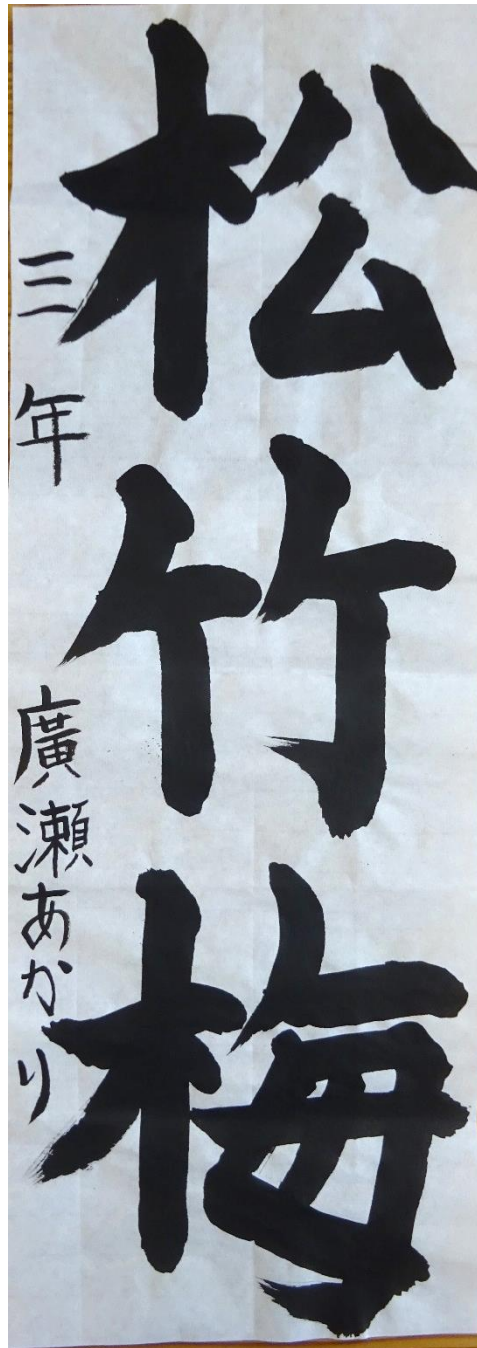 松竹梅
三年 廣瀬あかり